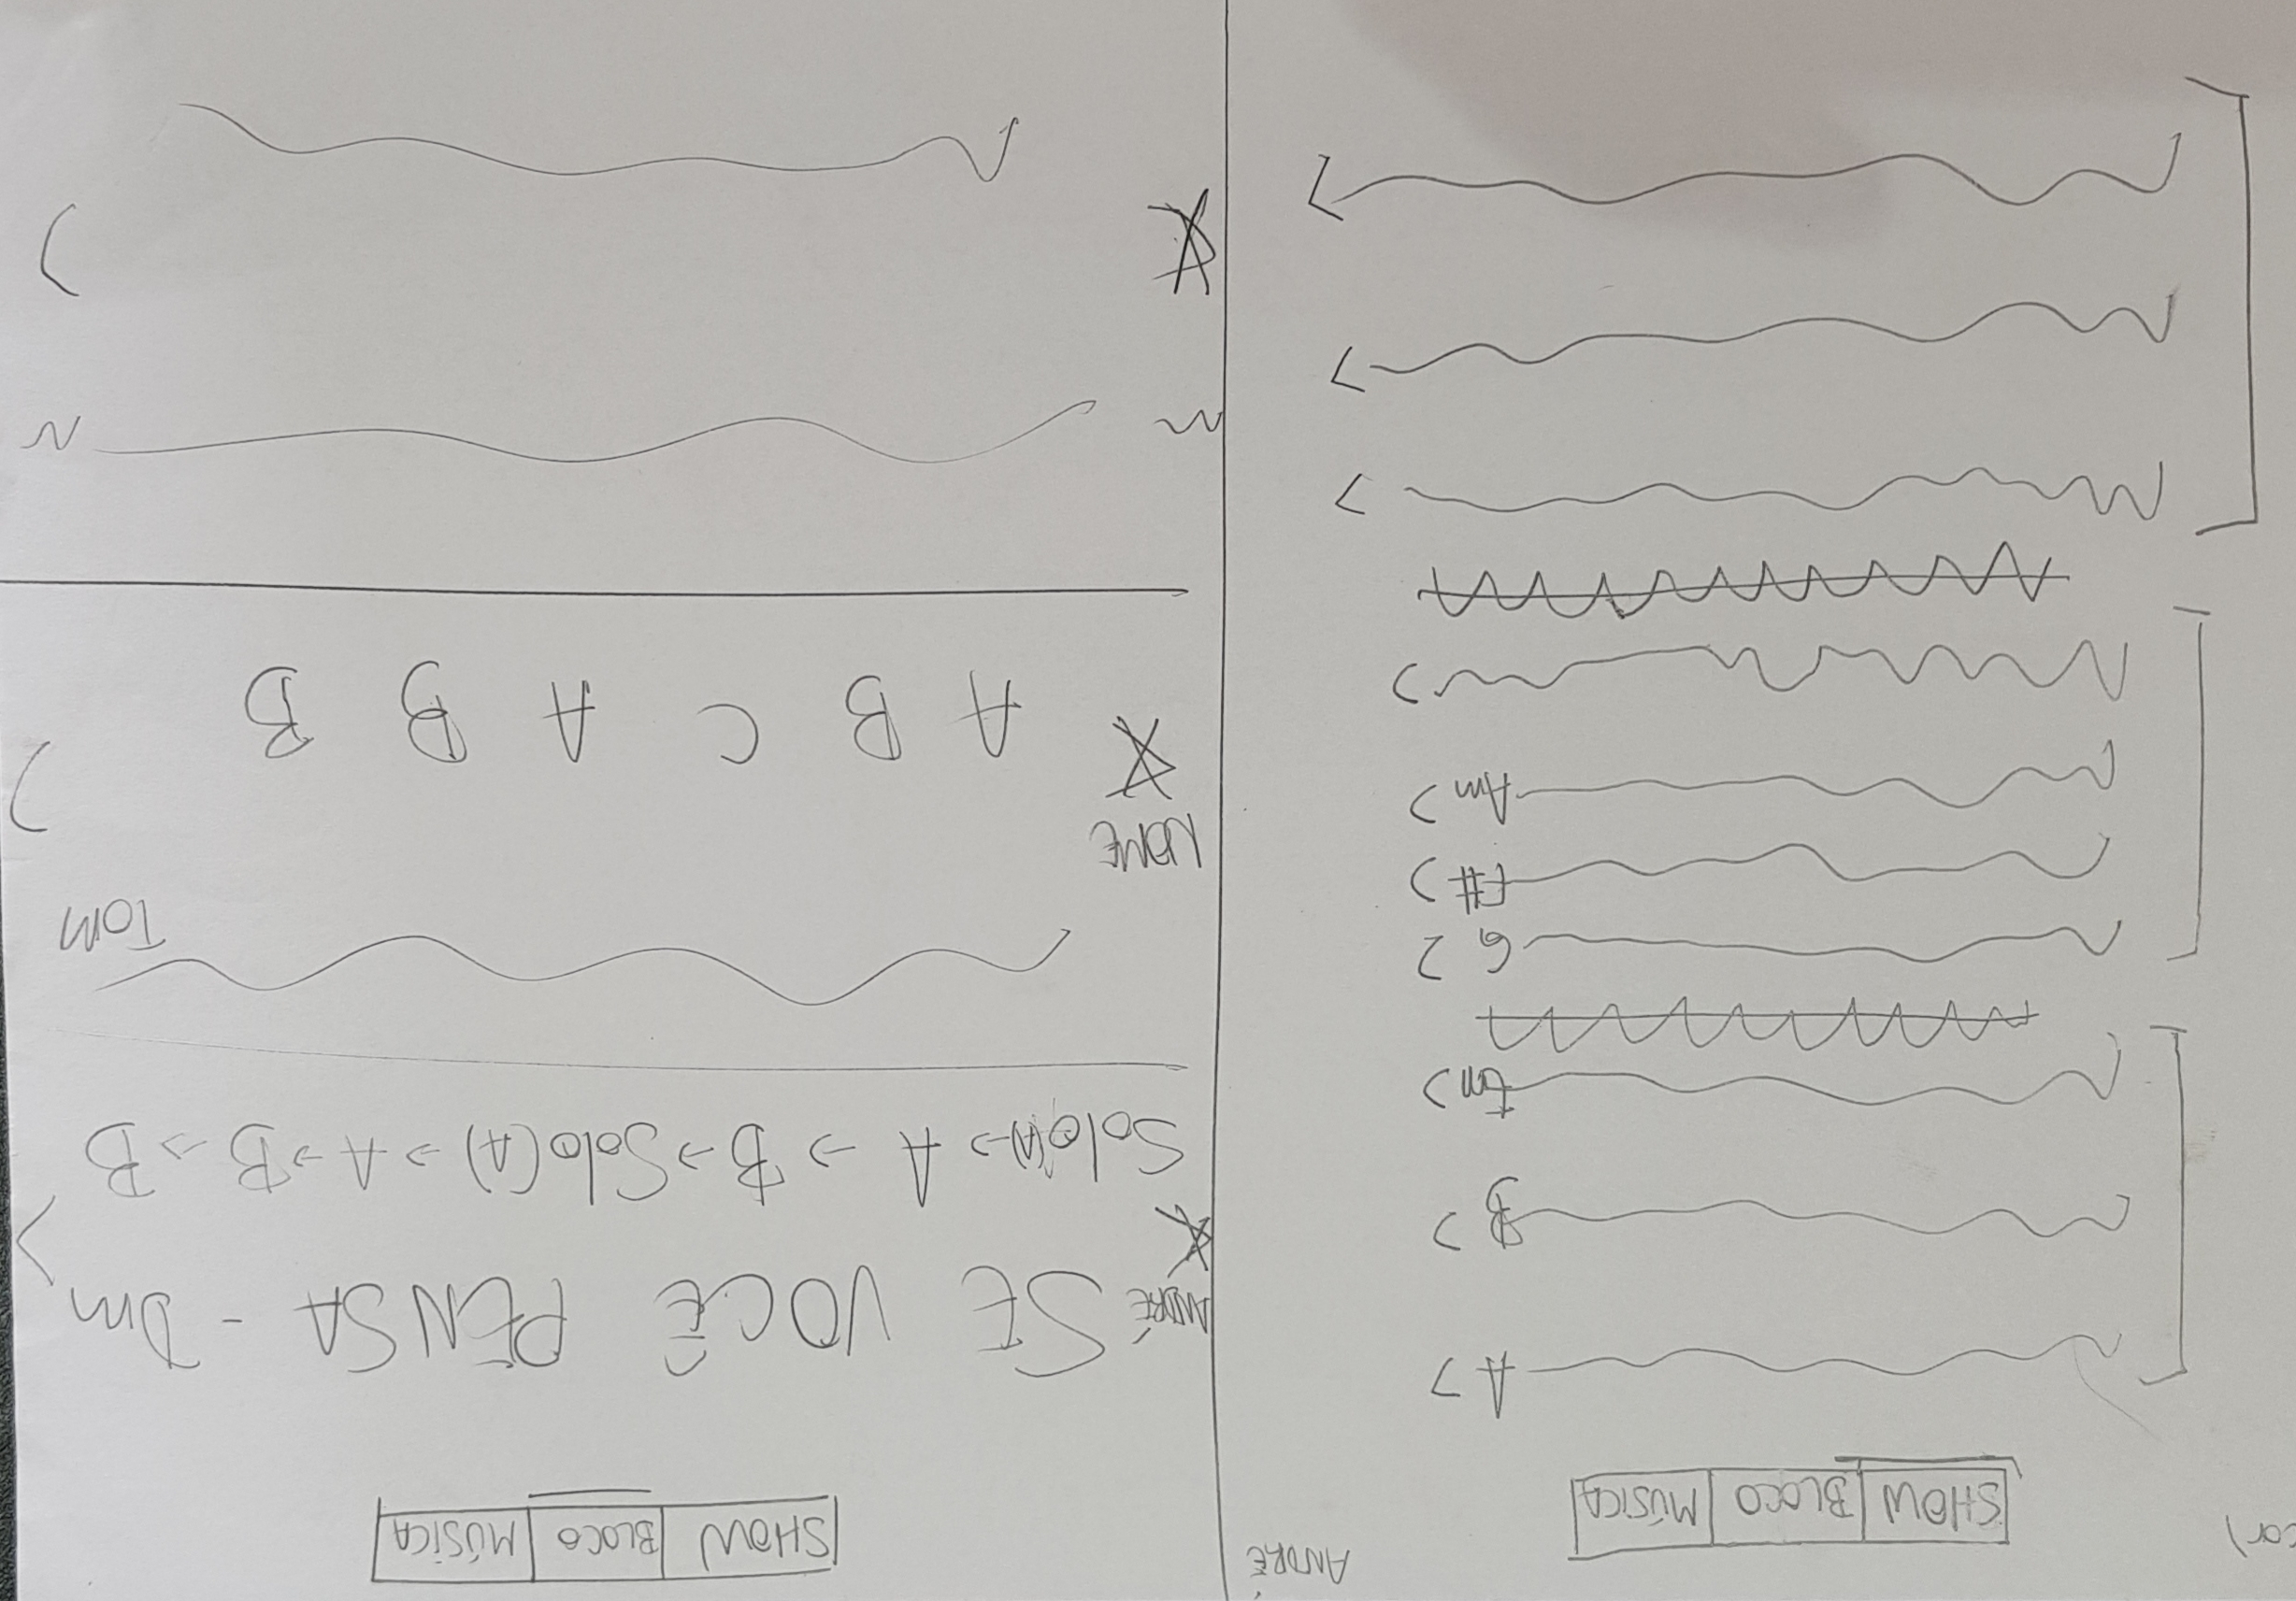 cor)
ANDRÉ
SHOW BLOCO MÚSICA
A >
B >
Em >
G >
F# >
Am >
>
>
>
>
SHOW BLOCO MÚSICA
ANDRÉ SE VOCÊ PENSA - Dm >
Solo(A) → A → B → Solo(A) → A → B → B
TOM
NOME
A B C A B B